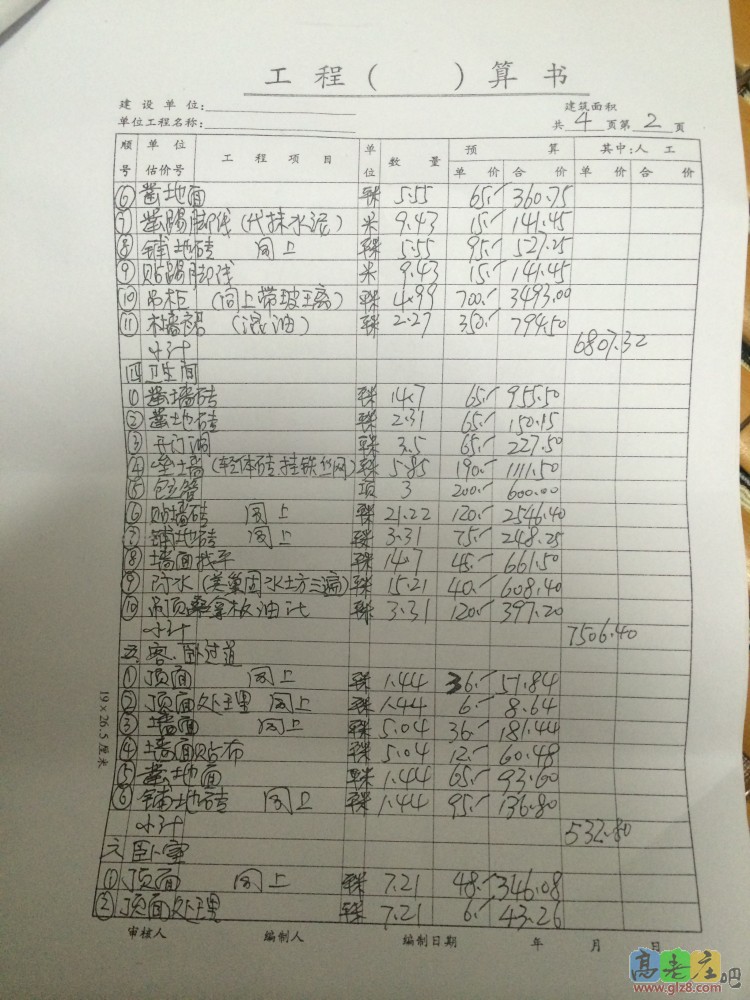 工 程 ( ) 算 书
建 设 单 位: 建筑面积
单位工程名称: 共 4 页第 2 页
顺号 单位估价号 工 程 项 目 单位 数 量 预 算 其中:人 工
单 价 合 价 单 价 合 价
⑥ 凿地面 平米 5.55 65.- 360.75
⑦ 凿踢脚线(代抹水泥) 米 9.43 15.- 141.45
⑧ 铺地砖 同上 平米 5.55 95.- 527.25
⑨ 贴踢脚线 米 9.43 15.- 141.45
⑩ 吊柜 (同上带玻王离) 平米 4.99 700.- 3493.00
⑪ 木墙裙 (混油) 平米 2.27 350.- 794.50
小计 6807.32
四 卫生间
① 凿墙砖 平米 14.7 65.- 955.50
② 凿地砖 平米 2.31 65.- 150.15
③ 开门洞 平米 3.5 65.- 227.50
④ 垒墙(轻体砖挂铁丝网) 平米 5.85 190.- 1111.50
⑤ 包立管 项 3 200.- 600.00
⑥ 贴墙砖 同上 平米 21.22 120.- 2546.40
⑦ 铺地砖 同上 平米 3.31 75.- 248.25
⑧ 墙面找平 平米 14.7 45.- 661.50
⑨ 防水(美巢固水土方三遍) 平米 15.21 40.- 608.40
⑩ 吊顶桑拿板油漆 平米 3.31 120.- 397.20
小计 7506.40
五 客.卧过道
① 顶面 同上 平米 1.44 36.- 51.84
② 顶面处理 同上 平米 1.44 6.- 8.64
③ 墙面 同上 平米 5.04 36.- 181.44
④ 墙面贴布 平米 5.04 12.- 60.48
⑤ 凿地面 平米 1.44 65.- 93.60
⑥ 铺地砖 同上 平米 1.44 95.- 136.80
小计 532.80
六 卧室
① 顶面 同上 平米 7.21 48.- 346.08
② 顶面处理 平米 7.21 6.- 43.26
审核人 编制人 编制日期 年 月 日
19×26.5厘米
高老庄吧
www.glz8.com